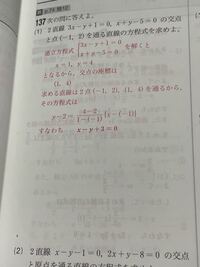 137 次の問に答えよ。
(1) 2直線 3x−y+1=0, x+y−5=0 の交点
と点(−1, 2)を通る直線の方程式を求めよ。
連立方程式 {3x−y+1=0
x+y−5=0 を解くと
x=1, y=4
となるから, 交点の座標は
(1, 4)
求める直線は2点(−1, 2), (1, 4)を通るから,
その方程式は
y−2=4−2/1−(−1){x−(−1)}
すなわち x−y+3=0
(2) 2直線 x−y−1=0, 2x+y−8=0 の交
と原点を通る直線の方程式を求